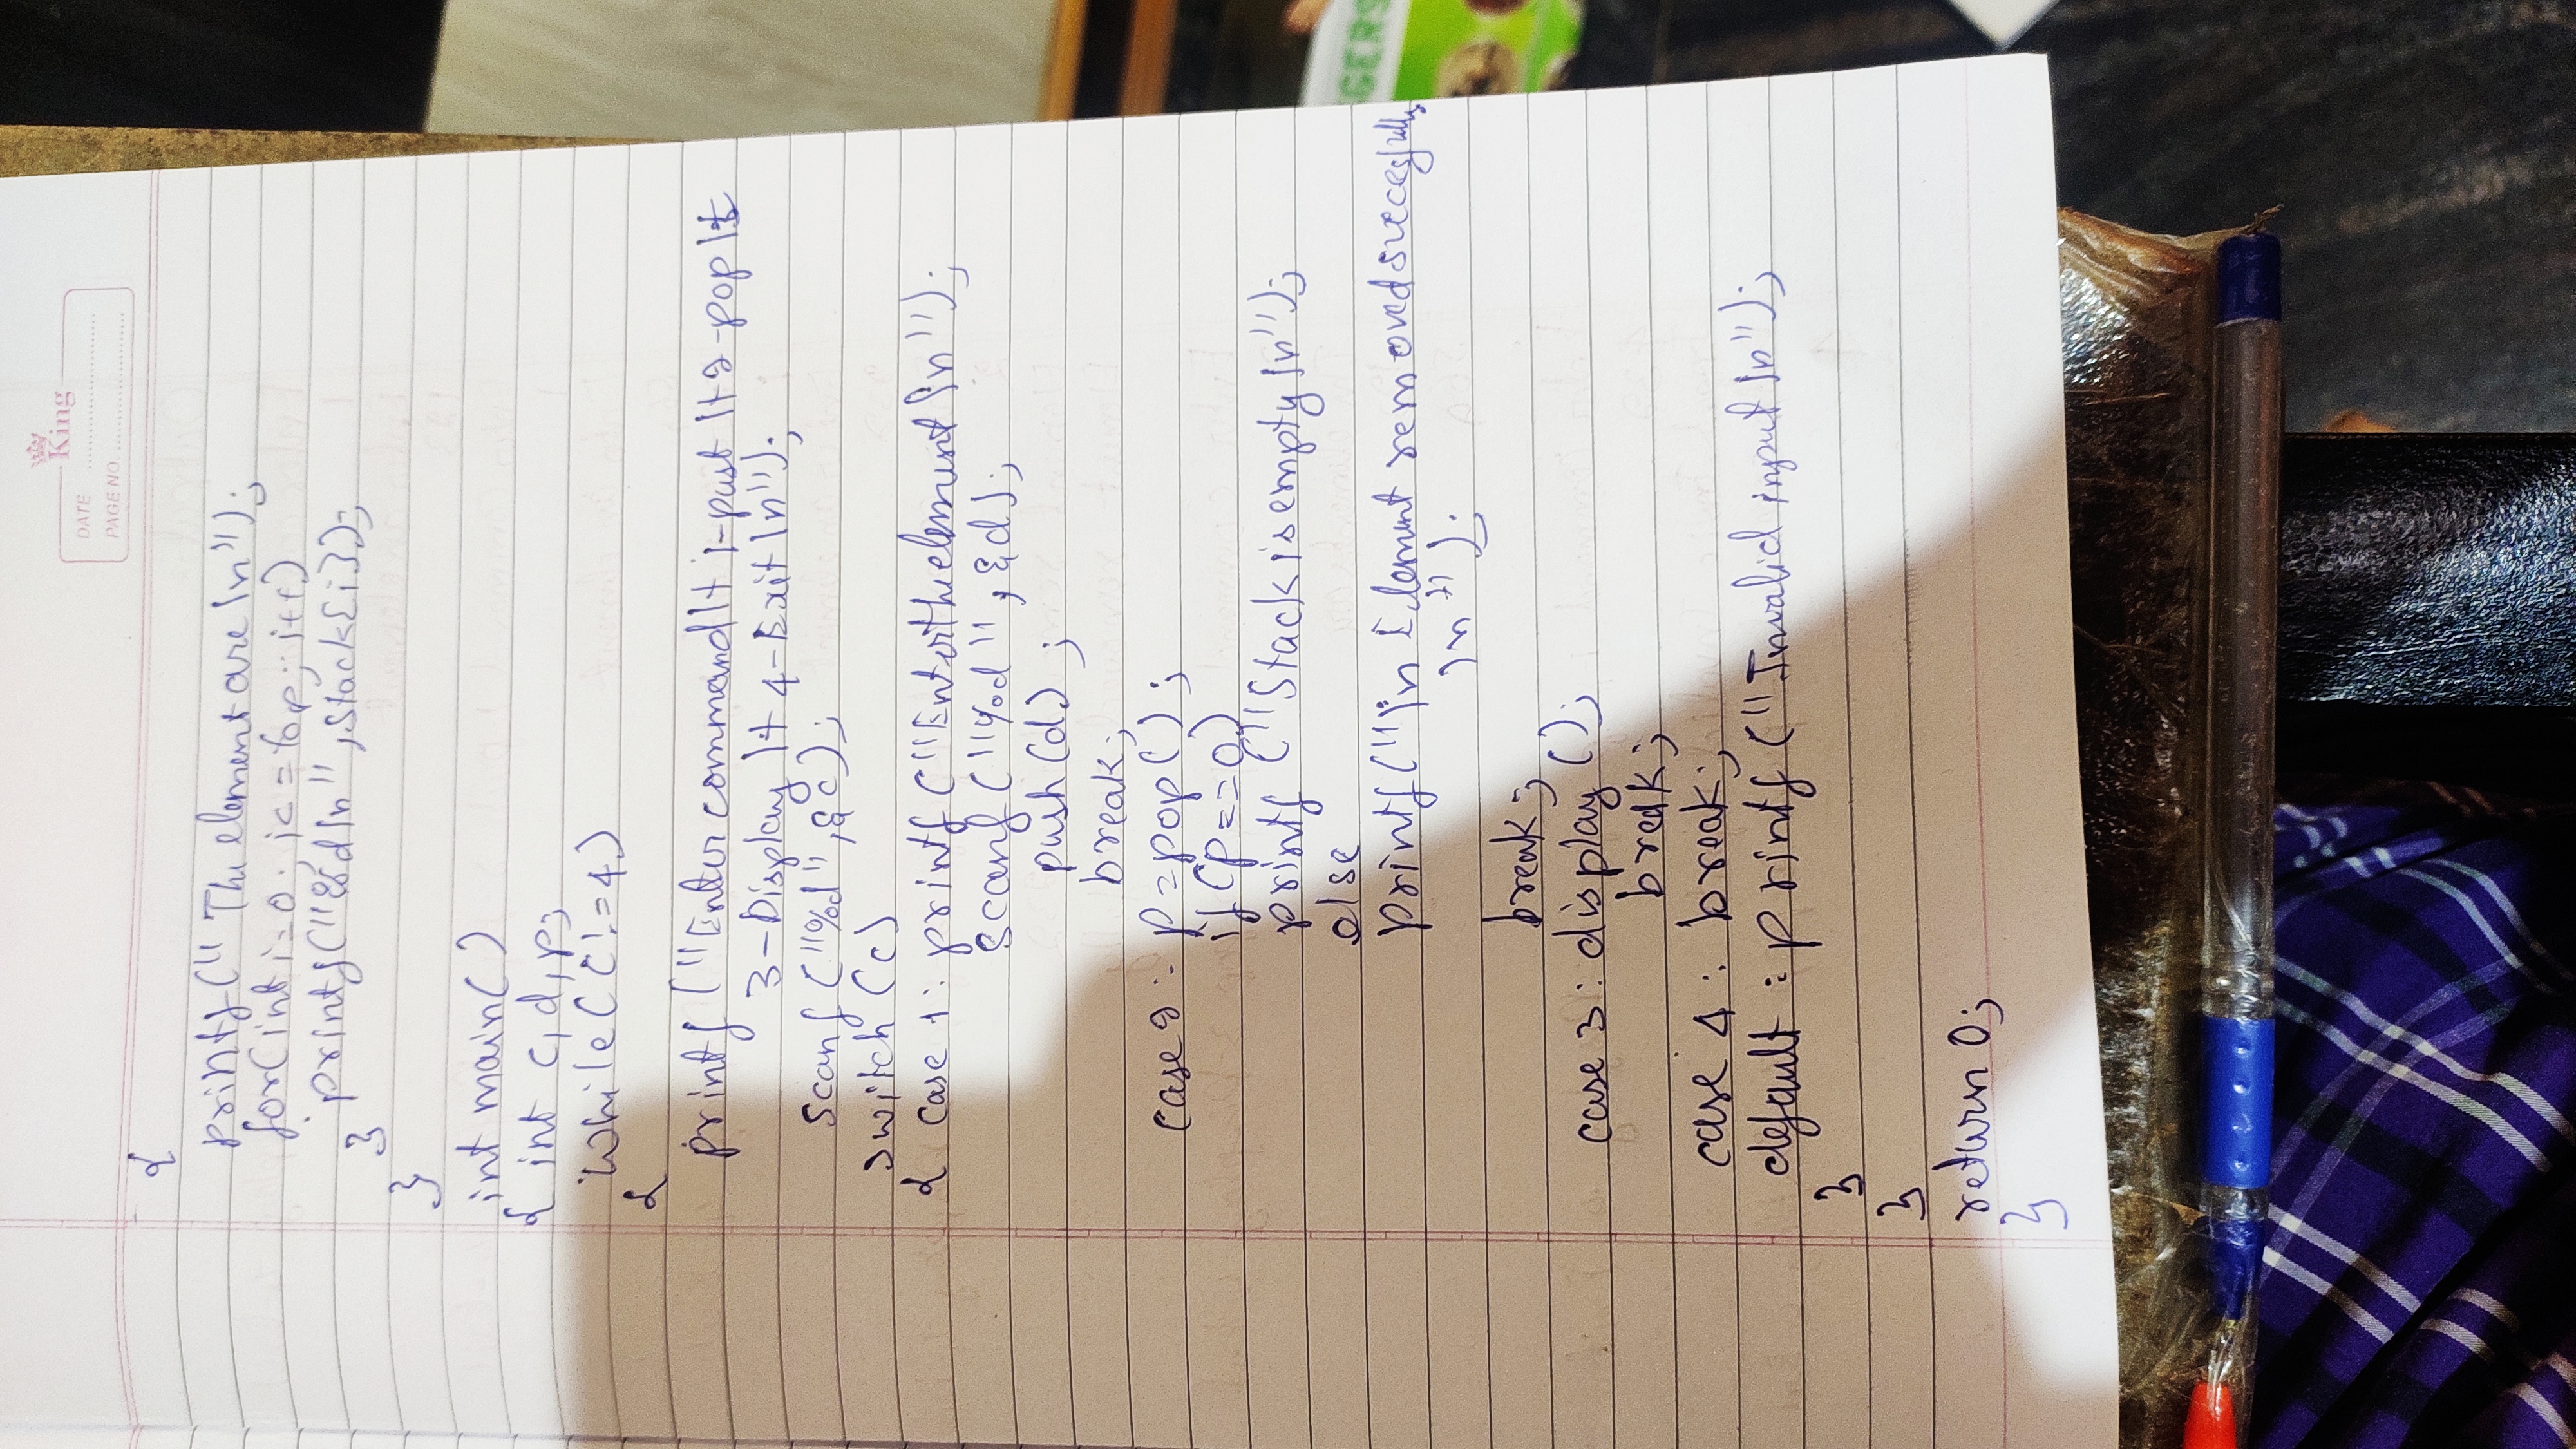 King
DATE
PAGE NO.
{
printf(" The element are \n");
for(int i=0; i<=top; i++)
printf("%d\n", Stack[i]);
}
}
int main()
{ int c, d, p;
while(c!=4)
{
printf("Enter command \t 1-pust \t 2-pop \t
3-Display \t 4-Exit \n");
scanf("%d", &c);
switch (c)
{ case 1: printf("Enter the element \n");
scanf("%d", &d);
push(d) ;
break;
case 2: p=pop();
if(p==0)
printf("Stack is empty \n");
else
printf("\n Element removed
\n");
break;
case 3: display();
break;
case 4: break;
default : printf("Invalid input \n");
}
}
return 0;
}
GERS